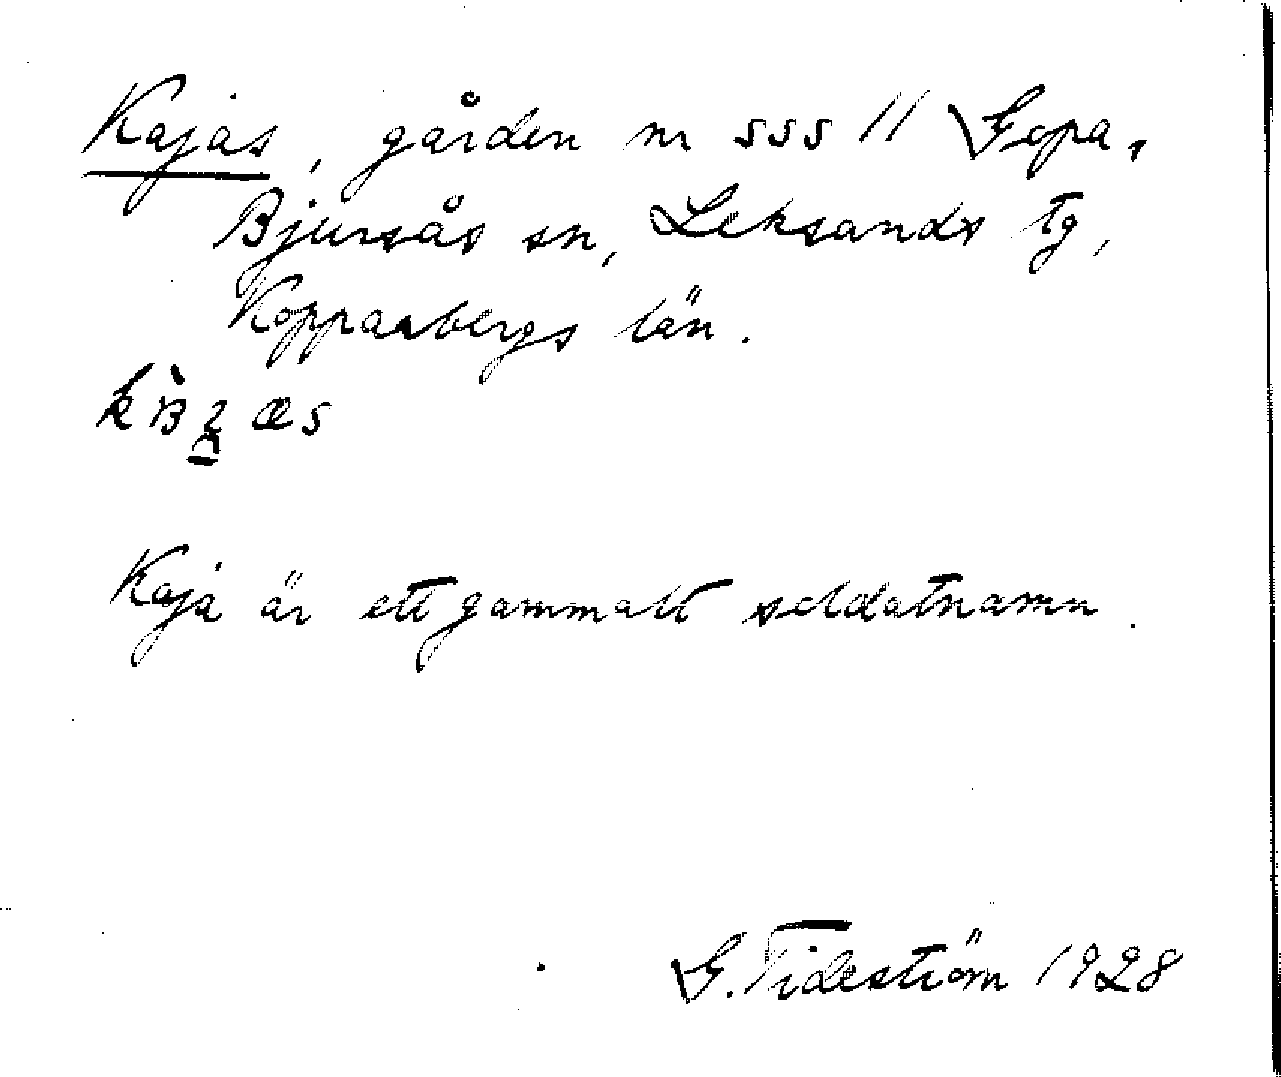 Kajas, gården nr 555 11 Gopa,
Bjursås sn, Leksands tg,
Kopparbergs län.
Kaja är ett gammalt soldatnamn.
G. Tideström 1928